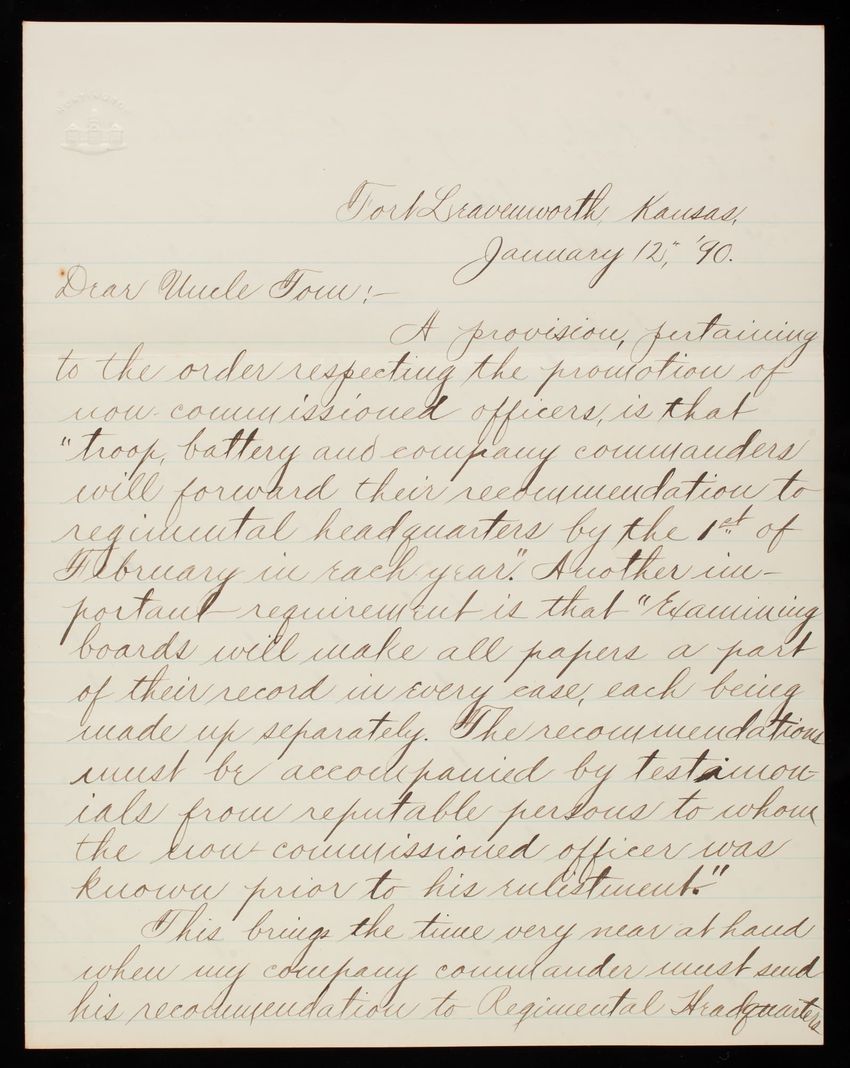 HUNTINGTON
Fort Leavenworth, Kansas,
January 12", '90.
Dear Uncle Tom:-
A provision, pertaining
to the order respecting the promotion of
non-commissioned officers, is that
"troop, battery and company commanders
will forward their recommendation to
regimental headquarters by the 1st of
February in each year". Another im-
portant requirement is that "Examining
boards will make all papers a part
of their record in every case, each being
made up separately. The recommendations
must be accompanied by testimon-
ials from reputable persons to whom
the non-commissioned officer was
known prior to his enlistment."
This brings the time very near at hand
when my company commander must send
his recommendation to Regimental Headquarters